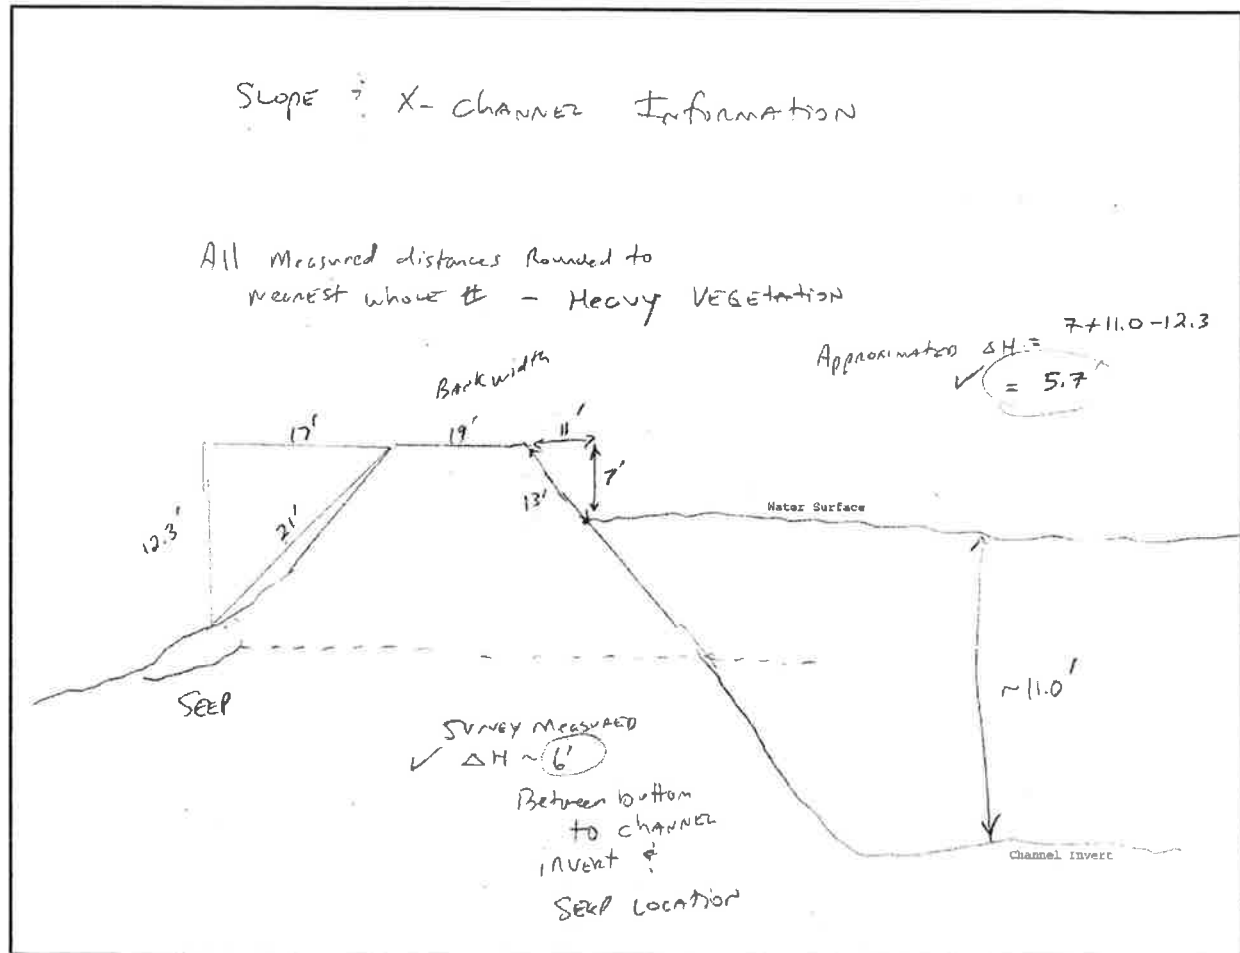 SLOPE & X-CHANNEL INFORMATION
All Measured distances Rounded to
nearest whole # - Heavy VEGETATION
Approximated ΔH = 7+11.0-12.3
✓ = 5.7'
Bank width
17'
19'
11'
7'
13'
12.3'
21'
Water Surface
SEEP
~11.0'
Survey Measured
✓ ΔH ~ 6'
Between bottom
to channel
invert &
SEEP LOCATION
Channel Invert